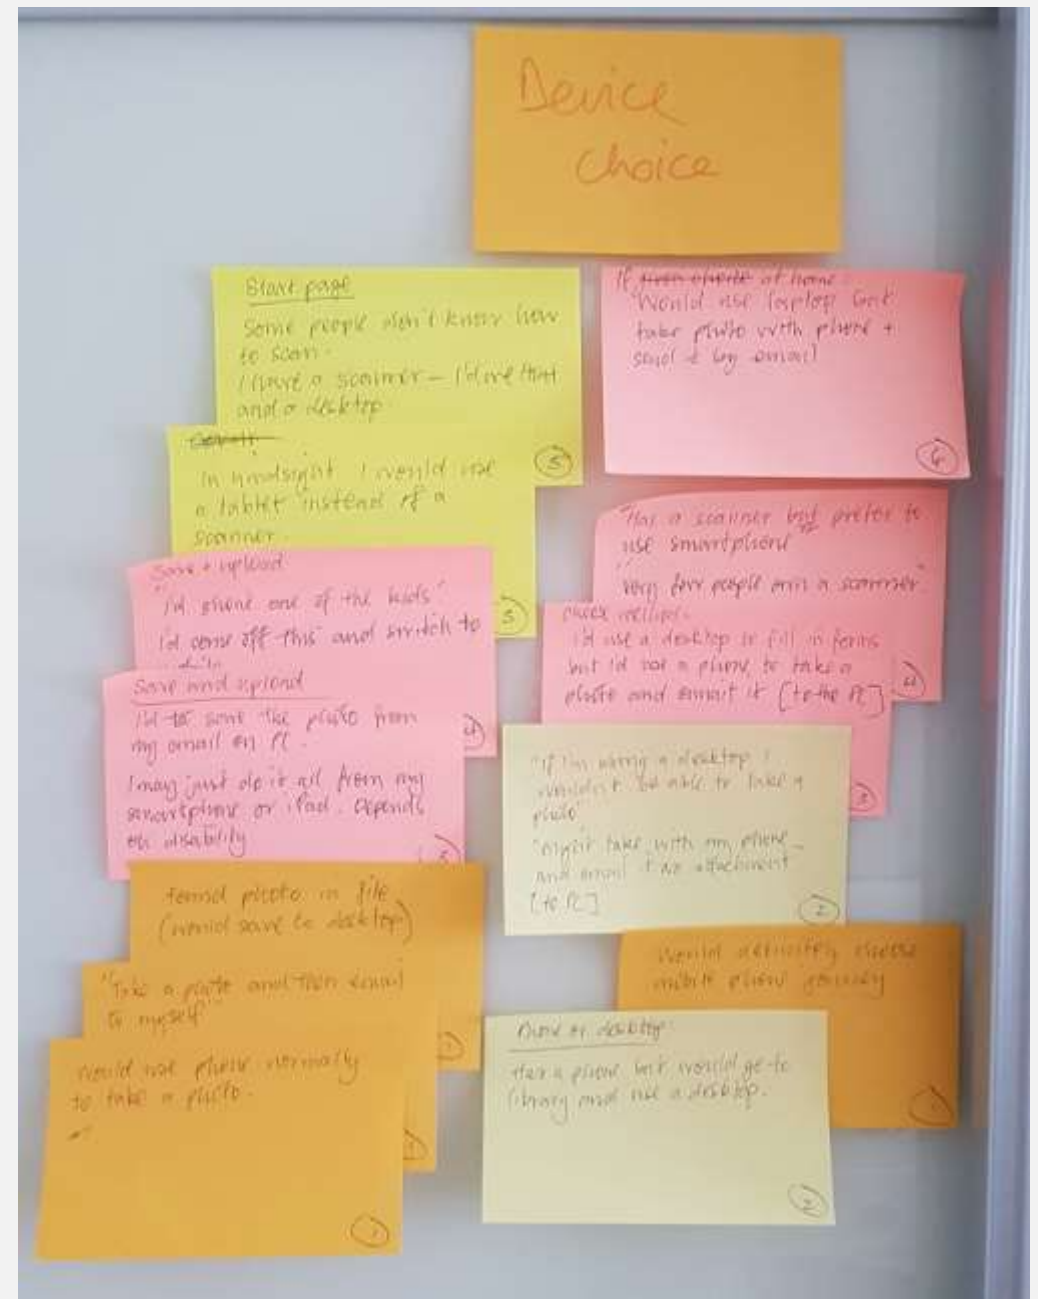 Device
choice
Start page
Some people don't know how
to scan.
I have a scanner - I'd use that
and a desktop
5
In hindsight I would use
a tablet instead of a
scanner
5
Save + upload
"I'd phone one of the kids"
I'd come off this and switch to
4
Save and upload
I'd to save the photo from
my email on PC.
I may just do it all from my
smartphone or iPad. Depends
on disability
3
found photo in file
(would save to desktop)
1
"Take a photo and then email
to myself"
1
would use phone normally
to take a photo.
1
If given choice at home:
"Would use laptop but
take photo with phone +
send it by email
4
Has a scanner but prefer to
use smartphone
"Very few people own a scanner"
4
I'd use a desktop to fill in forms
but I'd use a phone to take a
photo and email it [to the PC]
3
"If I'm using a desktop I
wouldn't be able to take a
photo"
"might take with my phone -
and email it as attachment
[to PC]
2
Would definitely choose
mobile phone journey
1
Phone or desktop
Has a phone but would go to
library and use a desktop.
2